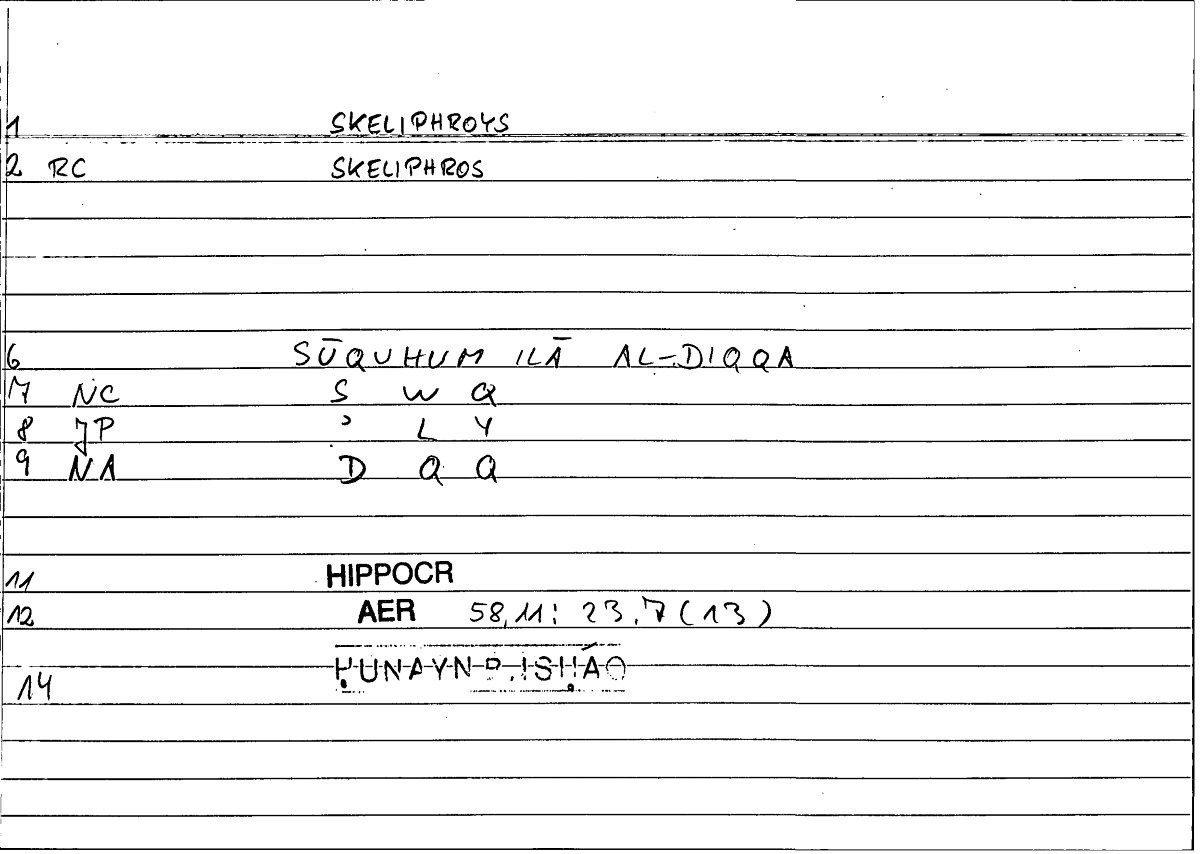 1 SKELIPHROYS
2 RC SKELIPHROS
6 SŪQUHUM ILĀ AL-DIQQA
7 NC S W Q
8 JP ʾ L Y
9 NA D Q Q
11 HIPPOCR
12 AER 58,11: 23,7 (13)
ḤUNAYN B. ISḤĀQ
14